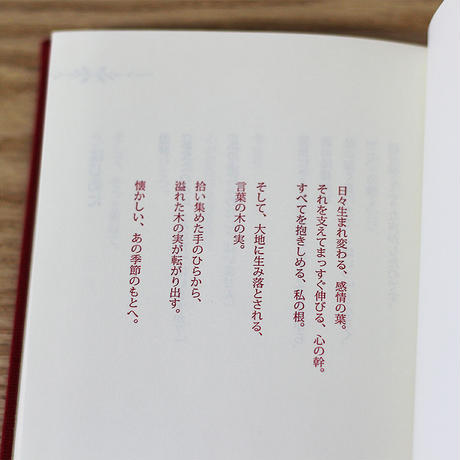 日々生まれ変わる、感情の葉。
それを支えてまっすぐ伸びる、心の幹。
すべてを抱きしめる、私の根。
そして、大地に生み落とされる、
言葉の木の実。
拾い集めた手のひらから、
溢れた木の実が転がり出す。
懐かしい、あの季節のもとへ。